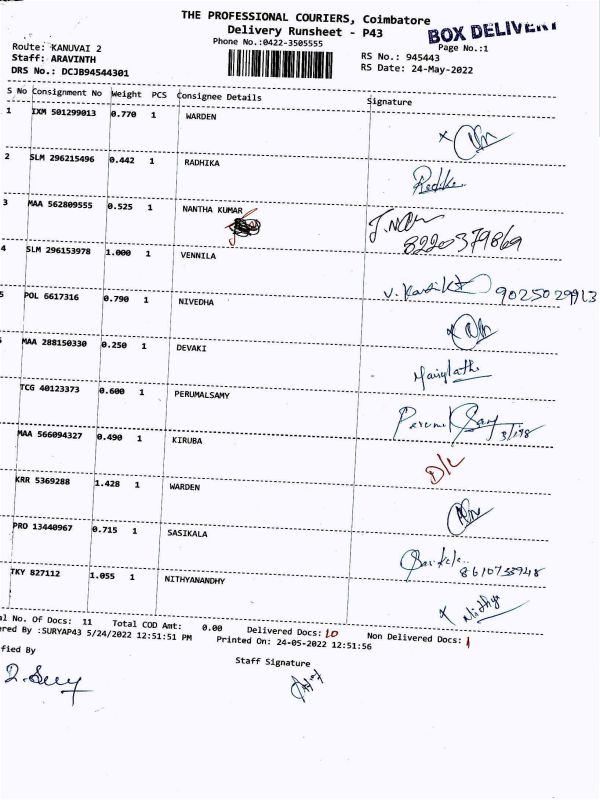 THE PROFESSIONAL COURIERS, Coimbatore
Delivery Runsheet - P43
BOX DELIVERY
Phone No.:0422-3505555
Page No.:1
Route: KANUVAI 2
Staff: ARAVINTH
DRS No.: DCJB94544301
RS No.: 945443
RS Date: 24-May-2022
S No Consignment No Weight PCS Consignee Details Signature
1 IXM 501299013 0.770 1 WARDEN
2 SLM 296215496 0.442 1 RADHIKA
3 MAA 562809555 0.525 1 NANTHA KUMAR
8220379869
4 SLM 296153978 1.000 1 VENNILA V. 9025029913
5 POL 6617316 0.790 1 NIVEDHA
MAA 288150330 0.250 1 DEVAKI
TCG 40123373 0.600 1 PERUMALSAMY
MAA 566094327 0.490 1 KIRUBA D/L
KRR 5369288 1.428 1 WARDEN
PRO 13440967 0.715 1 SASIKALA Sasikala 8610735948
TKY 827112 1.055 1 NITHYANANDHY Nidhya
al No. Of Docs: 11 Total COD Amt: 0.00 Delivered Docs: 10 Non Delivered Docs: 1
ered By :SURYAP43 5/24/2022 12:51:51 PM Printed On: 24-05-2022 12:51:56
ified By Staff Signature